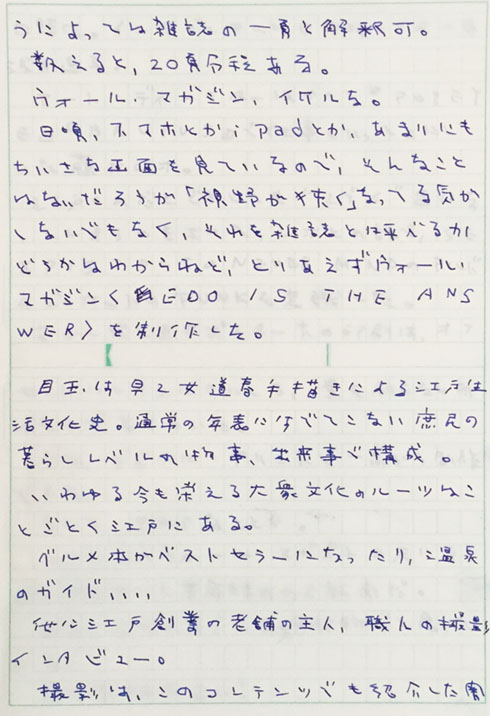 うによっては雑誌の一頁と解釈可。
数えると、20頁分程ある。
ウォール・マガジン、イケルな。
日頃、スマホとかiPadとか、あまりにも
ちいさな画面を見ているので、そんなこと
はないだろうが「視野が狭く」なってる気が
しないでもなく、それを雑誌と呼べるか
どうかはわからねど、とりあえずウォール・
マガジン〈EDO IS THE ANS
WER〉を制作した。
目玉は早乙女道春手描きによる江戸生
活文化史。通常の年表にはでてこない庶民の
暮らしレベルの物事、出来事で構成
いわゆる今も栄える大衆文化のルーツはこ
とごとく江戸にある。
グルメ本がベストセラーになったり、温泉
のガイド、、、
他に江戸創業の老舗の主人、職人の撮影
インタビュー。
撮影は、このコンテンツでも紹介した